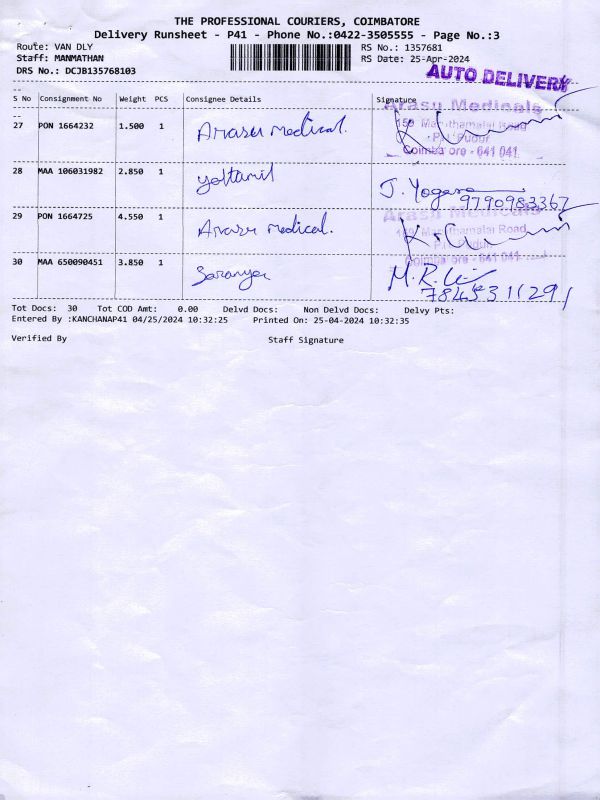 THE PROFESSIONAL COURIERS, COIMBATORE
Delivery Runsheet - P41 - Phone No.:0422-3505555 - Page No.:3
Route: VAN DLY RS No.: 1357681
Staff: MANMATHAN RS Date: 25-Apr-2024
DRS No.: DCJB135768103
AUTO DELIVERY
--
S No Consignment No Weight PCS Consignee Details Signature
--
Arasu Medicals
27 PON 1664232 1.500 1 Arasu medical.
159 Maruthamalai Road
P.N. Pudur
Coimbatore - 641 041
28 MAA 106031982 2.850 1 J. Yoga
9790983367
Arasu Medicals
29 PON 1664725 4.550 1 Arasu medical.
159 Maruthamalai Road,
P.N. Pudur
Coimbatore - 641 041
30 MAA 650090451 3.850 1 Saranya M.R.
Tot Docs: 30 Tot COD Amt: 0.00 Delvd Docs: Non Delvd Docs: Delvy Pts:
Entered By :KANCHANAP41 04/25/2024 10:32:25 Printed On: 25-04-2024 10:32:35
Verified By Staff Signature